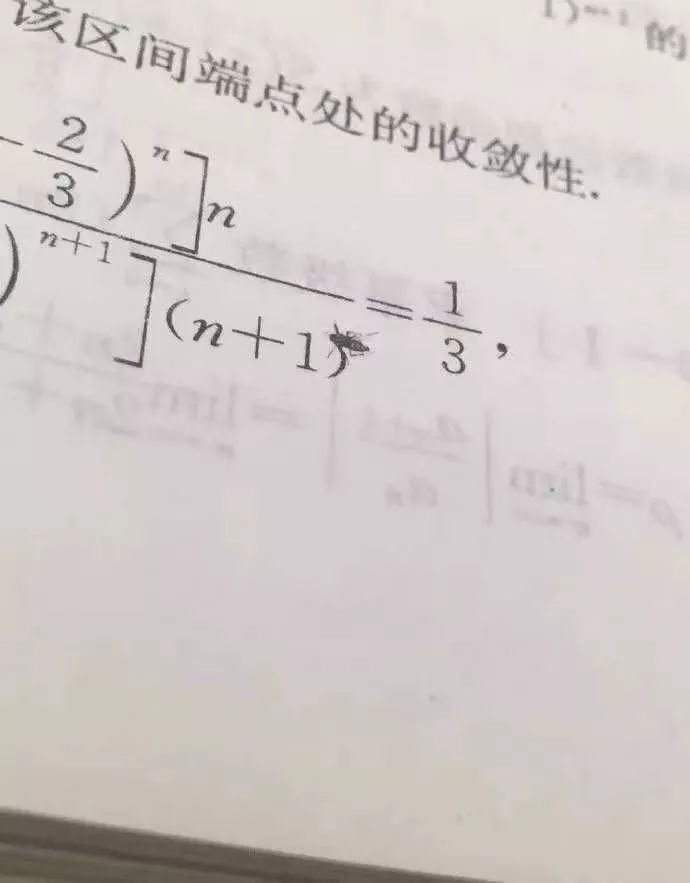 的
该区间端点处的收敛性.
-\frac{2}{3})^n]n
)^{n+1}](n+1) = \frac{1}{3},